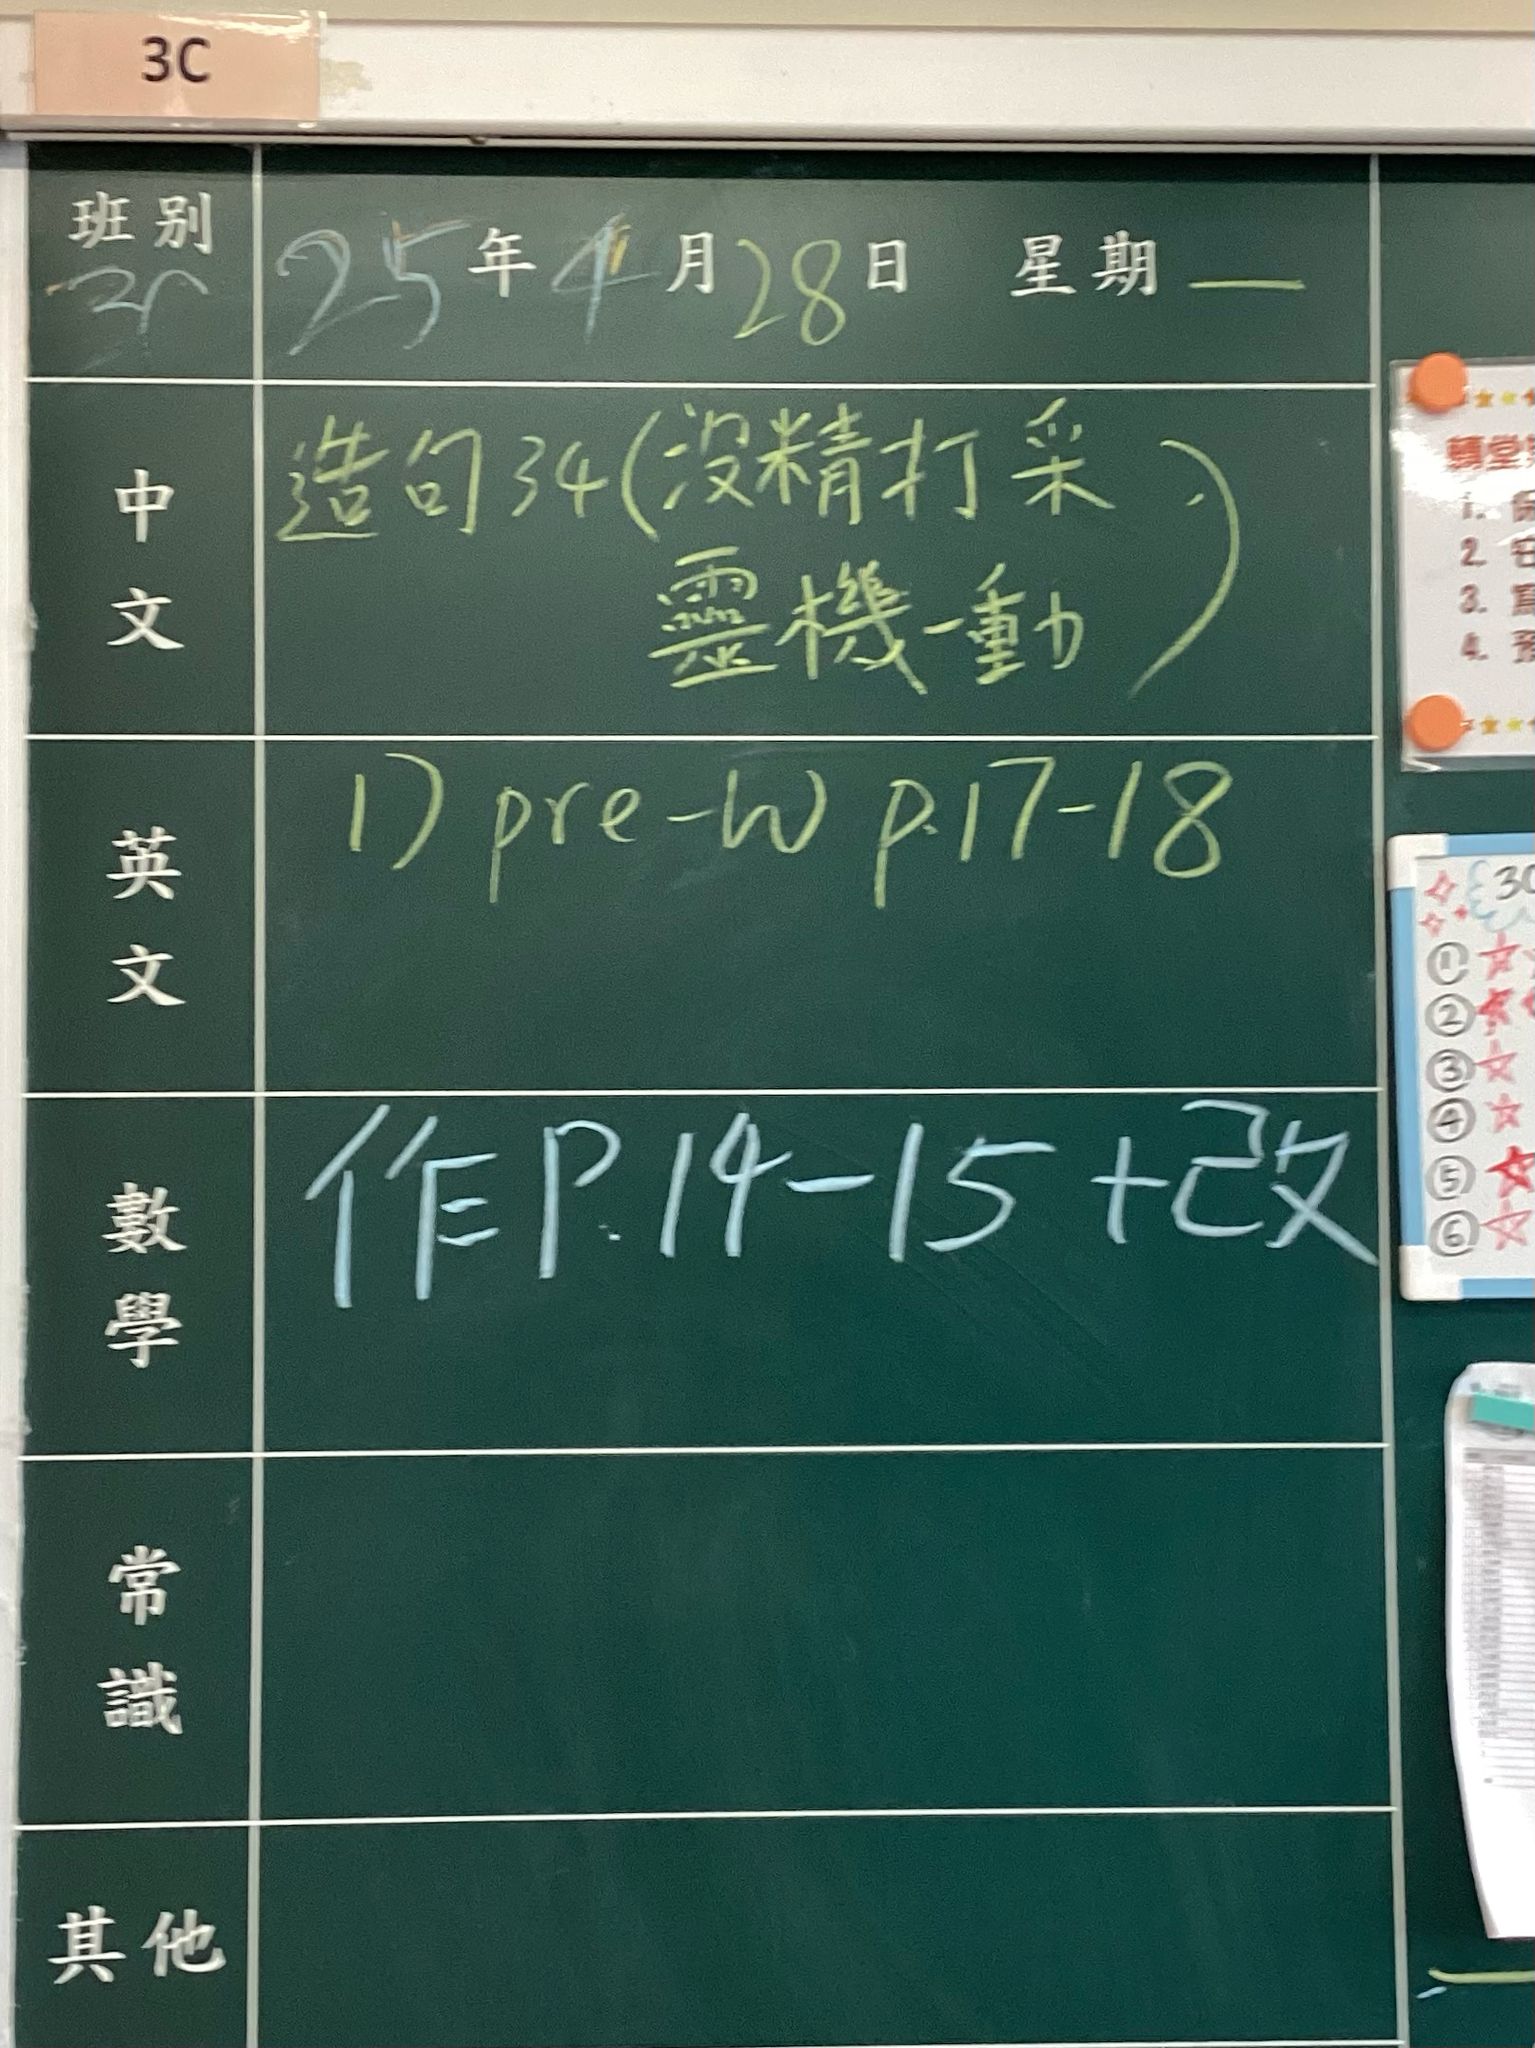 3C
班別 3C
25年4月28日 星期一
中文
造句34(沒精打采
靈機一動)
英文
1) pre-W p.17-18
數學
作P.14-15+改
常識
其他
轉堂
1. 保
2.
3.
4. 預
3C
①
②
③
④
⑤
⑥